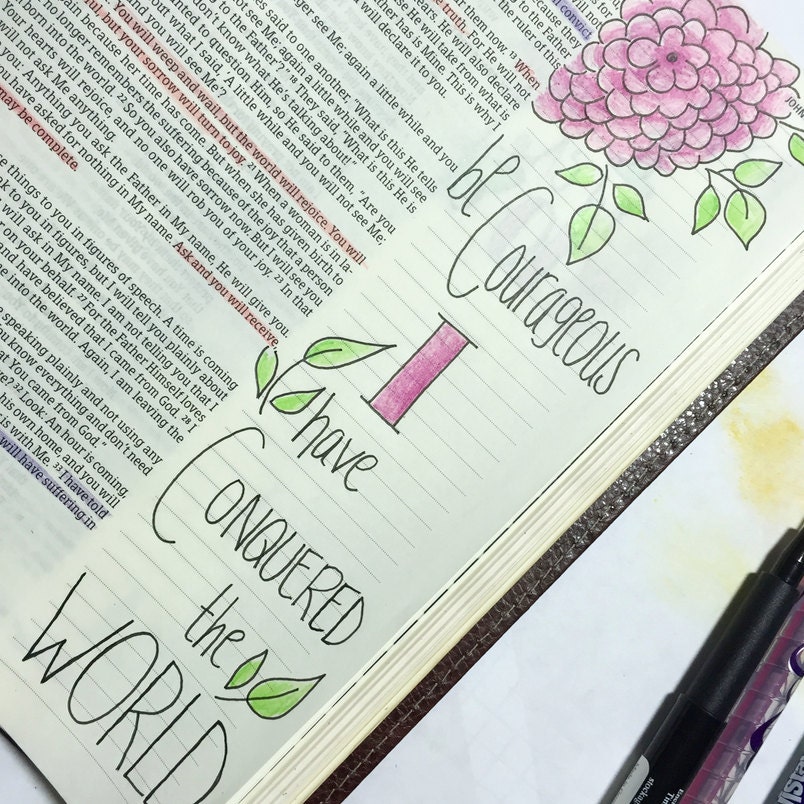 convict
because they
the ruler of this
them now. 13 When
truth. For He will not
He will also declare
will take from what is
Father has is Mine. This is why I
will declare it to you.
see Me; again a little while and you
said to one another, "What is this He tells
not see Me; again a little while and you will see
the Father'?" 18 They said, "What is this He is
don't know what He's talking about!"
wanted to question Him, so He said to them, "Are you
what you said, 'A little while and you will not see Me;
see Me'?
You will weep and wail, but the world will rejoice. You will
but your sorrow will turn to joy. 21 When a woman is in la-
because her time has come. But when she has given birth to
no longer remembers the suffering because of the joy that a person
into the world. 22 So you also have sorrow now. But I will see you
our hearts will rejoice, and no one will rob you of your joy. 23 In that
not ask Me anything.
Anything you ask the Father in My name, He will give you.
you have asked for nothing in My name. Ask and you will receive,
may be complete.
things to you in figures of speech. A time is coming
speak to you in figures, but I will tell you plainly about
will ask in My name. I am not telling you that I
on your behalf. 27 For the Father Himself loves
and have believed that I came from God. 28 I
into the world. Again, I am leaving the
speaking plainly and not using any
know everything and don't need
that You came from God."
32 Look: An hour is coming,
his own home, and you will
is with Me. 33 I have told
will have suffering in
be Courageous
I
have
CONQUERED
the
WORLD